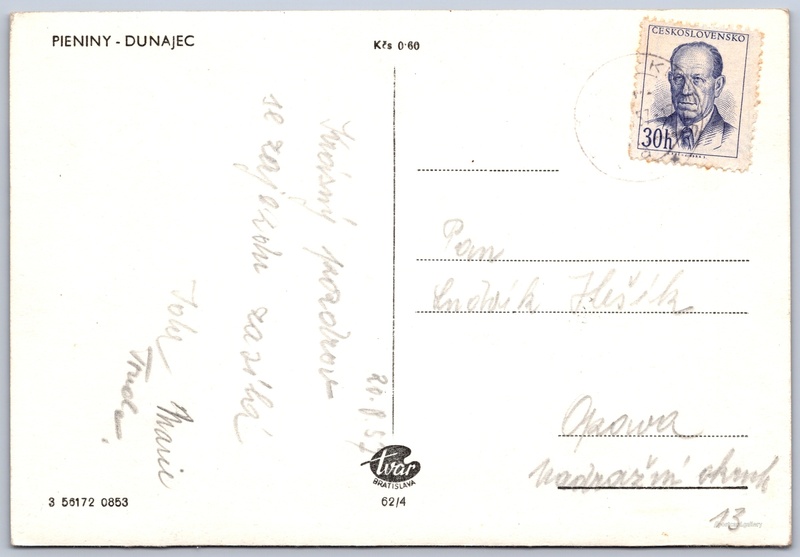 PIENINY - DUNAJEC
Kčs 0·60
ČESKOSLOVENSKO
30h
Krásný pozdrav
se zájezdu zasílá
Marie
Pan
Ludvík Hešík
Opava
Nádražní okruh
13
tvar
BRATISLAVA
62/4
3 56172 0853